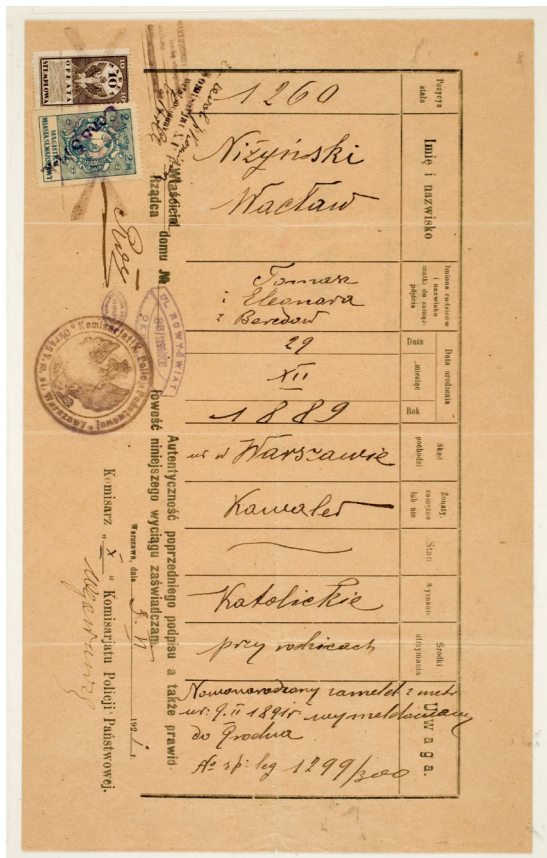 Pozycja stała
1260
Imię i nazwisko
Niżyński
Wacław
Imiona rodziców i nazwisko matki do zamąż-pójścia
Tomasz
i Eleonara
z Beredow
Data urodzenia
Data
29
miesiąc
XII
Rok
1889
Skąd pochodzi
ur w Warszawie
Żonaty, zamężna lub nie
Kawaler
Stan
Wyznanie
Katolickie
Środki utrzymania
przy rodzicach
Uwaga.
Nowonarodzony zameld z metr
ur. 9. II 1891r wymeldowany
do Grodna
No sp: leg 1299/300
Właściciel domu №
Rządca
Autentyczność poprzedniego podpisu a także prawid-
łowość niniejszego wyciągu zaświadczam.
Warszawa, dnia 3. VI 1921 r.
Komisarz „X“ Komisarjatu Policji Państwowej.
OPŁATA
STEMPLOWA
10
2 M
MAGISTRAT
NOWY ŚWIAT
Komisarjat X. Policji Państwowej
Okręg V. m. st. Warszawa